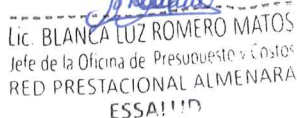 Lic. BLANCA LUZ ROMERO MATOS
Jefe de la Oficina de Presupuesto y Costos
RED PRESTACIONAL ALMENARA
ESSALUD